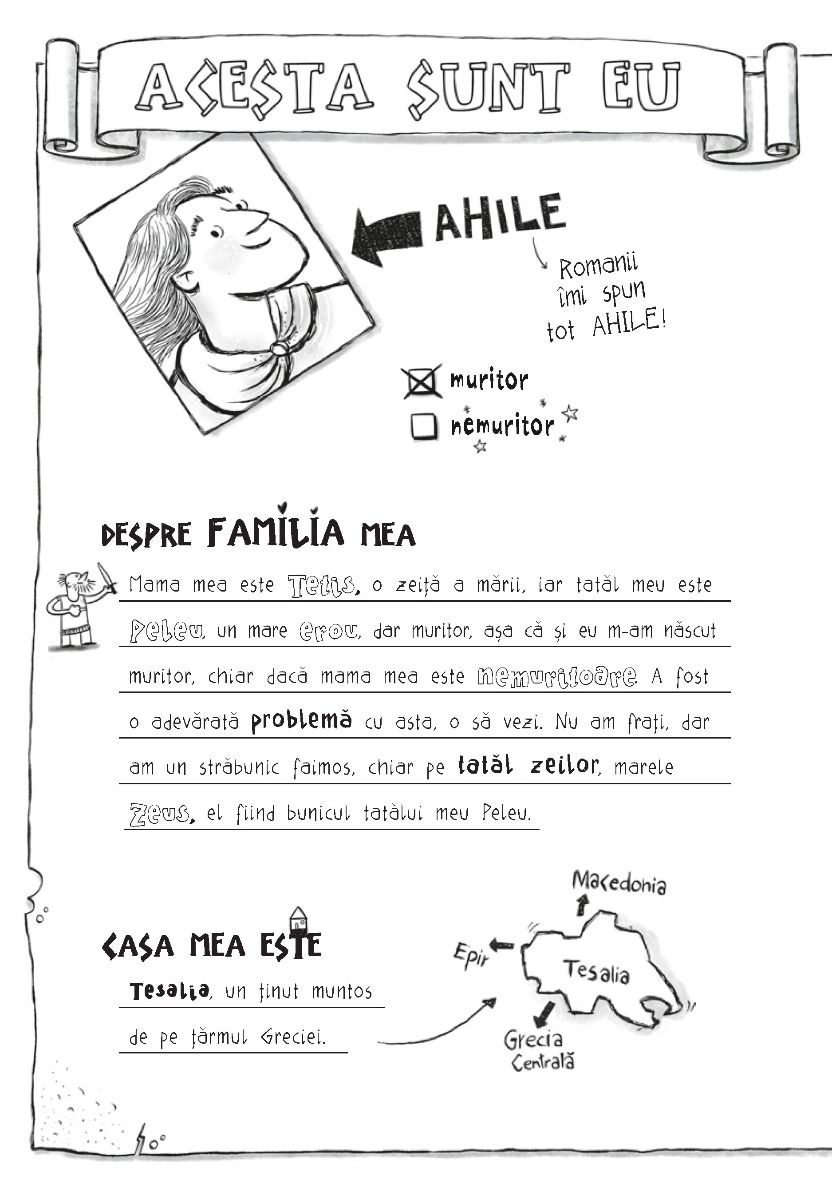 ACESTA SUNT EU
AHILE
Romanii
îmi spun
tot AHILE!
muritor
nemuritor
DESPRE FAMILIA MEA
Mama mea este Tetis, o zeiță a mării, iar tatăl meu este
Peleu, un mare erou, dar muritor, așa că și eu m-am născut
muritor, chiar dacă mama mea este nemuritoare. A fost
o adevărată problemă cu asta, o să vezi. Nu am frați, dar
am un străbunic faimos, chiar pe tatăl zeilor, marele
Zeus, el fiind bunicul tatălui meu Peleu.
CASA MEA ESTE
Tesalia, un ținut muntos
de pe țărmul Greciei.
Macedonia
Epir
Tesalia
Grecia
Centrală